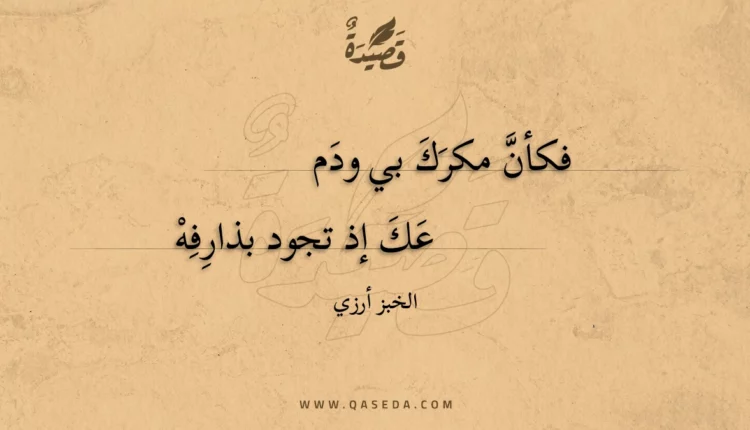 قَصِيْدَةٌ
فكأنَّ مكرَكَ بي ودَم
عَكَ إذ تجود بذارِفِهْ
الخبز أرزي
WWW.QASEDA.COM